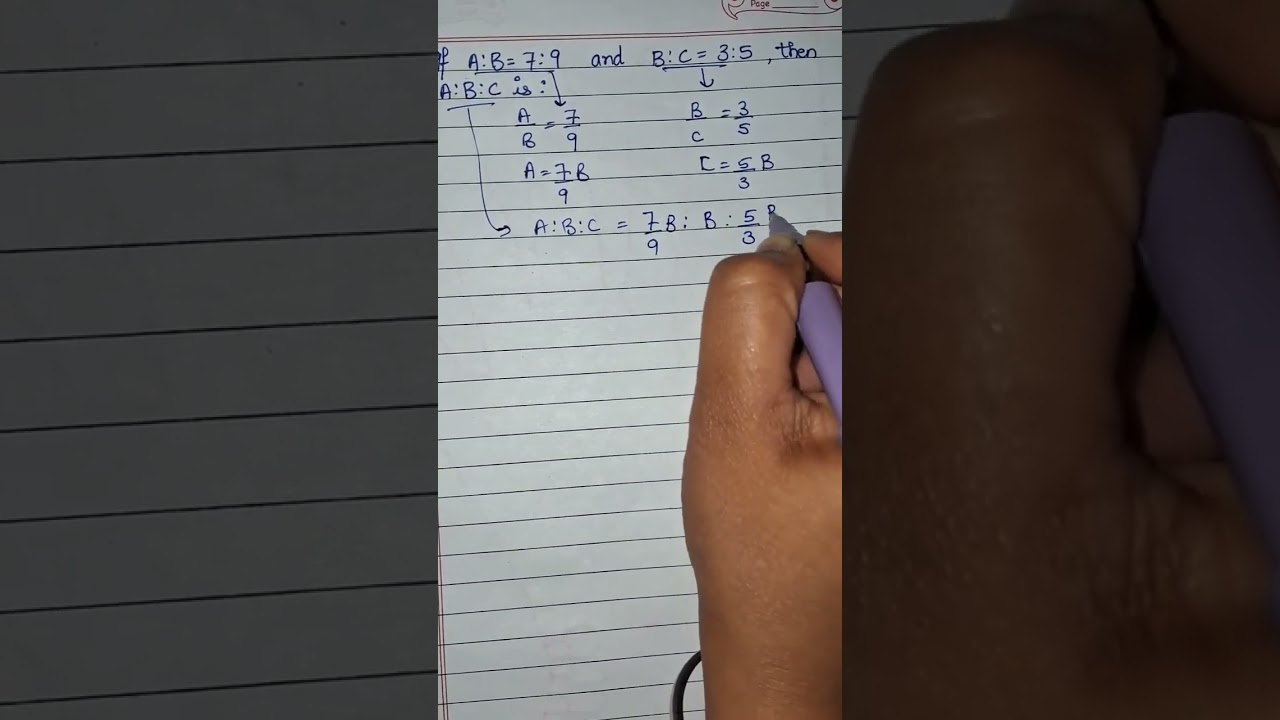 Page
If A:B = 7:9 and B:C = 3:5, then
A:B:C is:
A/B = 7/9 B/C = 3/5
A = 7/9 B C = 5/3 B
A:B:C = 7/9 B : B : 5/3 B